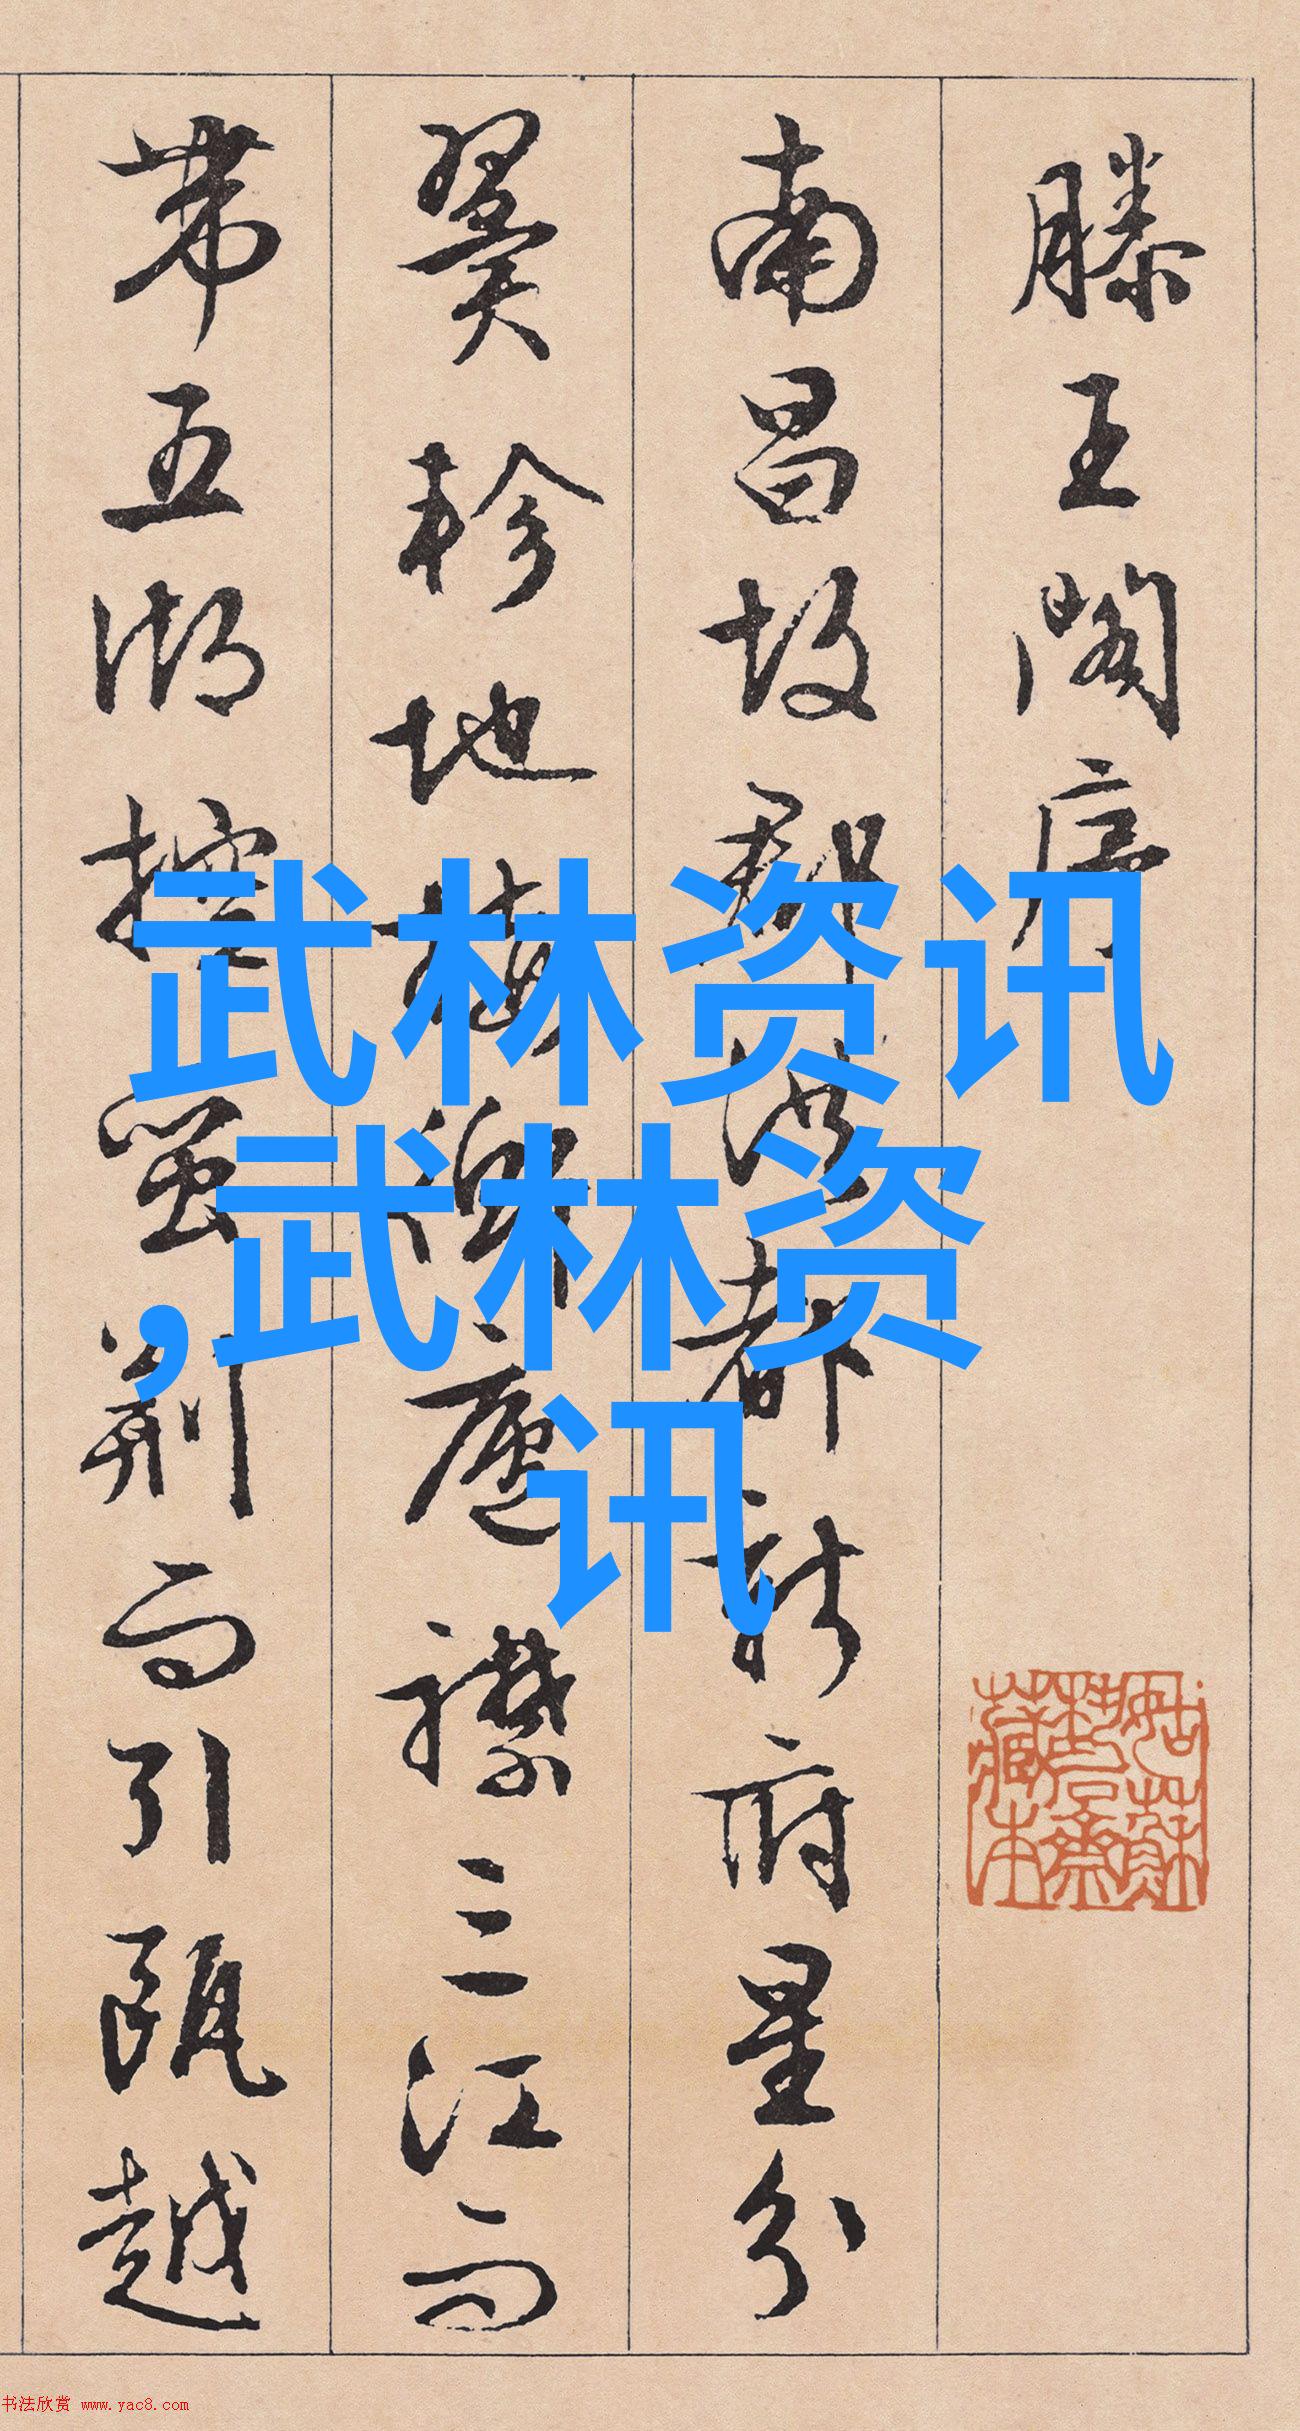 滕王阁序
南昌故郡洪都新府星分
翼轸地接衡庐襟三江而
带五湖控蛮荆而引瓯越
武林资讯
,武林资
讯
书法欣赏 www.yac8.com